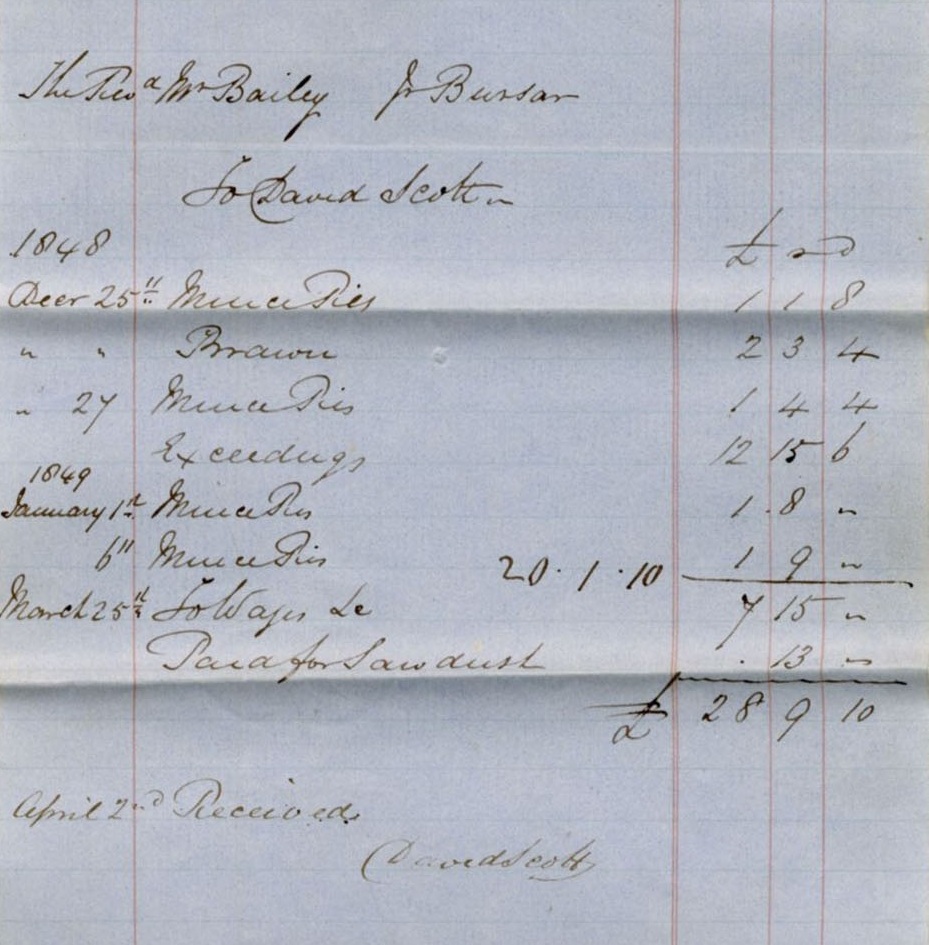 The Revd Mr Bailey Jr Bursar
To David Scott
1848 £ s d
Decr 25th Mince Pies 1 1 8
" " Brawn 2 3 4
" 27 Mince Pies 1 4 4
Exceedings 12 15 6
1849
January 1st Mince Pies 1 8 "
6" Mince Pies 1 9 "
20 . 1 . 10
March 25th To Wages &c 7 15 "
Paid for Sawdust . 13 "
£ 28 9 10
April 2nd Received
David Scott